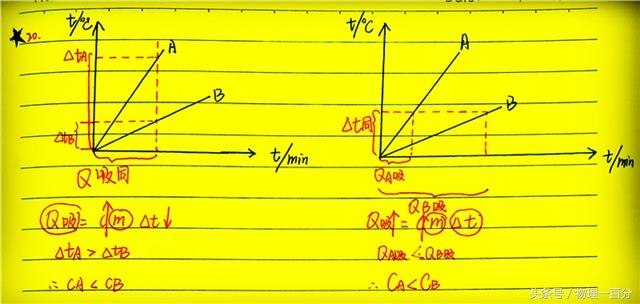 ★20.
t/℃
A
B
ΔtA
ΔtB
t/min
Q吸同
Q吸=c↑m Δt↓
ΔtA>ΔtB
∴cA<cB
t/℃
A
B
Δt同
t/min
QA吸
QB吸
Q吸↑=c↑m Δt
QA吸<QB吸
∴CA<CB
头条号/物理一百分